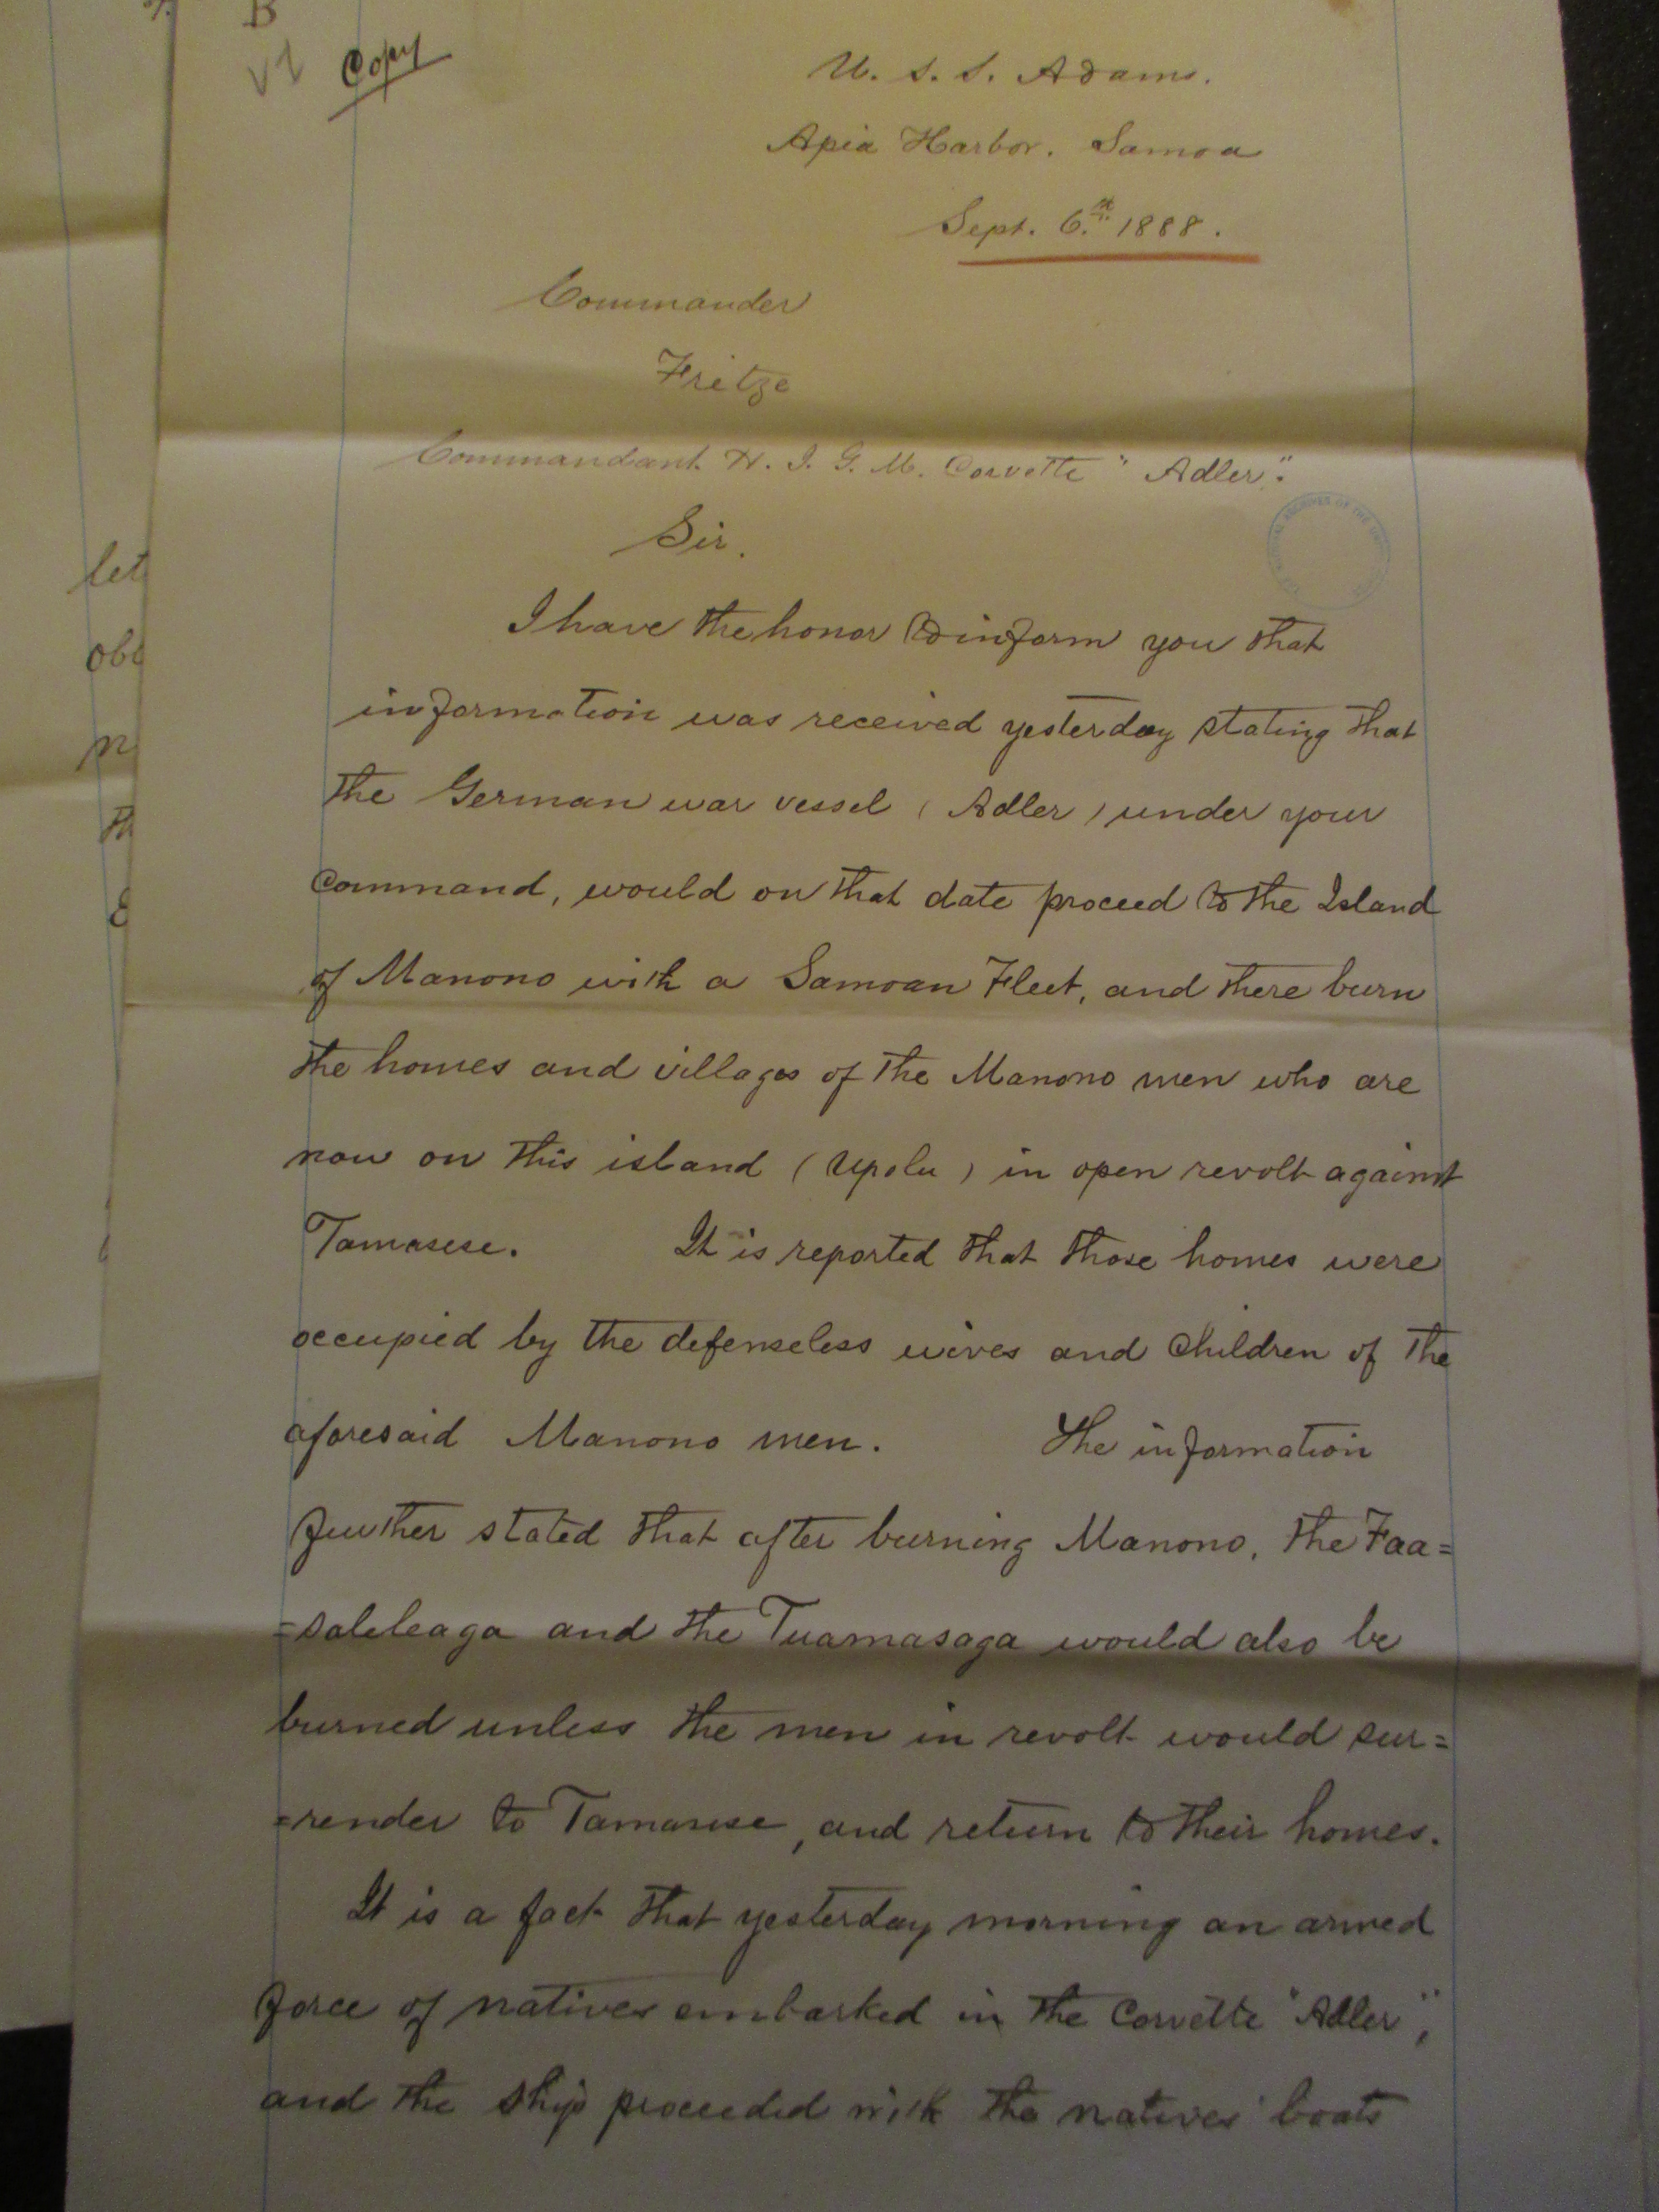 B
Copy
U. S. S. Adams.
Apia Harbor. Samoa
Sept. 6.th 1888.
Commander
Fritze
Commandant H. I. G. M. Corvette "Adler".
Sir.
I have the honor to inform you that
information was received yesterday stating that
the German war vessel (Adler) under your
command, would on that date proceed to the Island
of Manono with a Samoan Fleet, and there burn
the homes and villages of the Manono men who are
now on this island (Upolu) in open revolt against
Tamasese. It is reported that those homes were
occupied by the defenseless wives and children of the
aforesaid Manono men. The information
further stated that after burning Manono, the Faa=
=saleleaga and the Tuamasaga would also be
burned unless the men in revolt would sur=
=render to Tamasese, and return to their homes.
It is a fact that yesterday morning an armed
force of natives embarked in the Corvette "Adler",
and the ship proceeded with the natives' boats
let